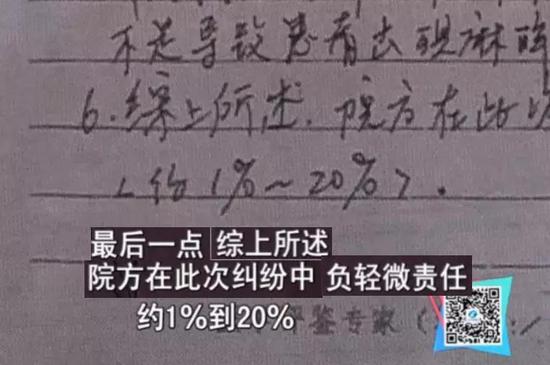 不是导致患者出现麻
6.综上所述.院方在此
(约1%~20%).
最后一点 综上所述
院方在此次纠纷中 负轻微责任
约1%到20%
评鉴专家(